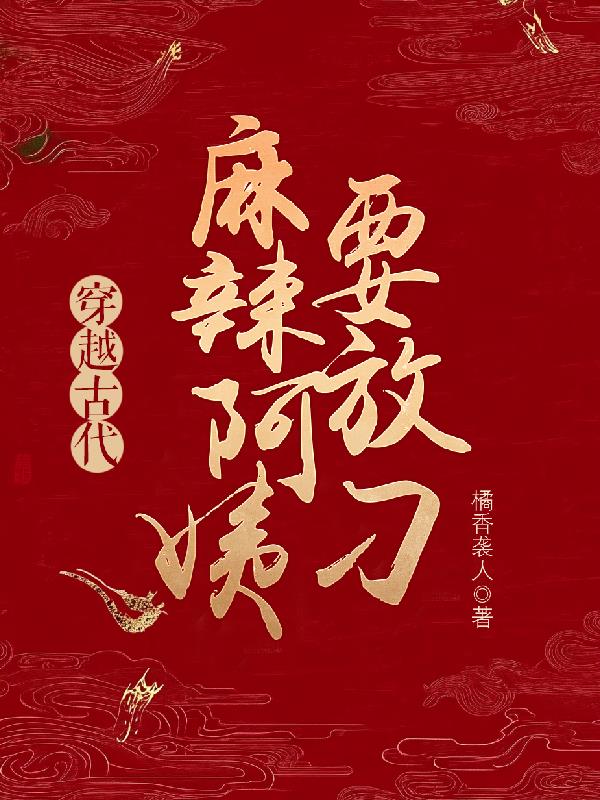 穿越古代
麻辣阿姨
要放刁
橘香袭人◎著